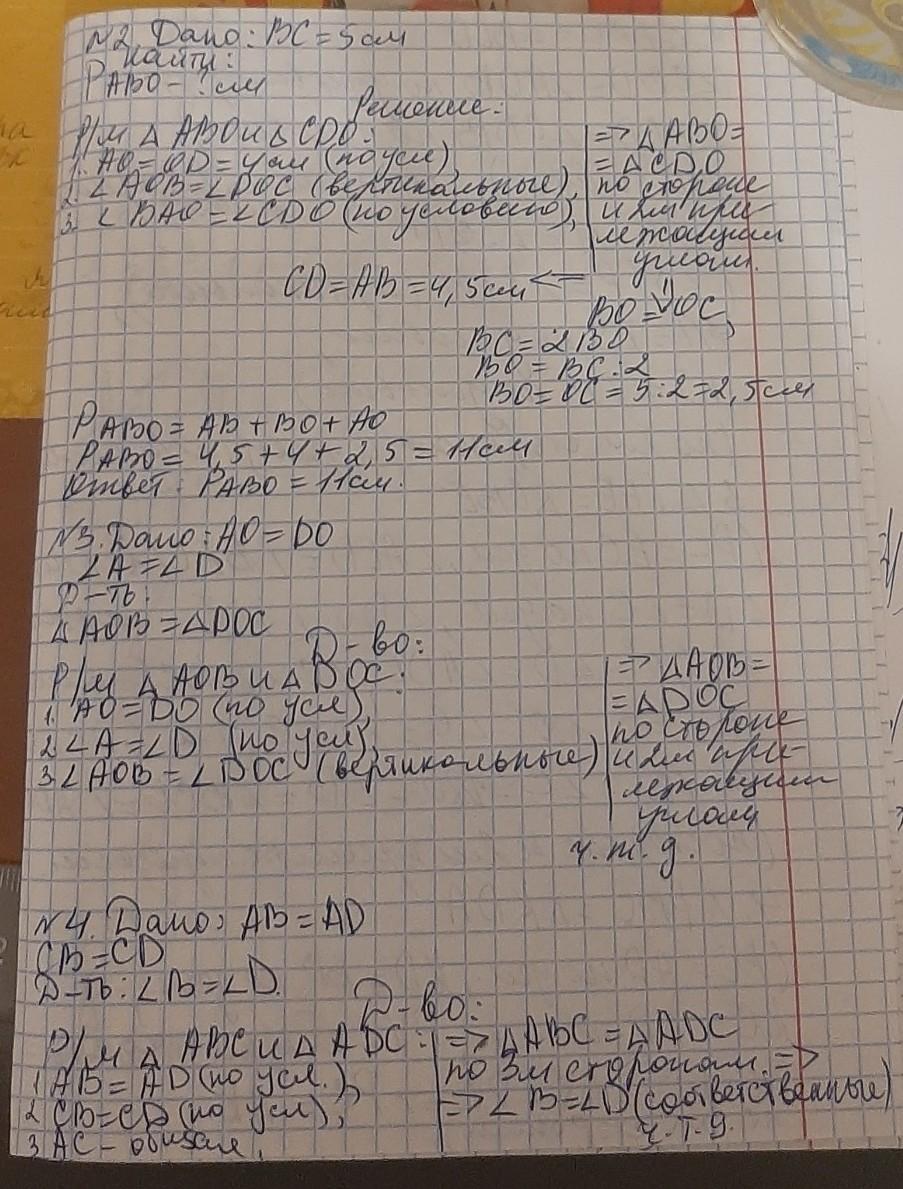 №2. Дано: BC = 5 см
Найти:
P ABO - ? см
Решение:
Р/м △ ABO и △ CDO:
1. AO = OD = 4 см (по усл)
2. ∠AOB = ∠DOC (вертикальные),
3. ∠BAO = ∠CDO (по условию),
=> △ ABO =
= △ CDO
по стороне
и 2м при-
лежащим
углам.
CD = AB = 4,5 см <=
BO = OC,
BC = 2 BO
BO = BC : 2
BO = OC = 5 : 2 = 2,5 см
P ABO = AB + BO + AO
P ABO = 4,5 + 4 + 2,5 = 11 см
Ответ: P ABO = 11 см.
№3. Дано: AO = DO
∠A = ∠D
Д-ть:
△ AOB = △ DOC
Д-во:
Р/м △ AOB и △ DOC:
1. AO = DO (по усл),
2 ∠A = ∠D (по усл),
3 ∠AOB = ∠DOC (вертикальные)
=> △AOB =
= △ DOC
по стороне
и 2м при-
лежащим
углам
ч.т.д.
№4. Дано: AB = AD
CB = CD
Д-ть: ∠B = ∠D.
Д-во:
Р/м △ ABC и △ ADC:
1 AB = AD (по усл.),
2 CB = CD (по усл),
3 AC - общая,
=> △ABC = △ADC
по 3м сторонам. =>
=> ∠B = ∠D (соответственные)
ч.т.д.